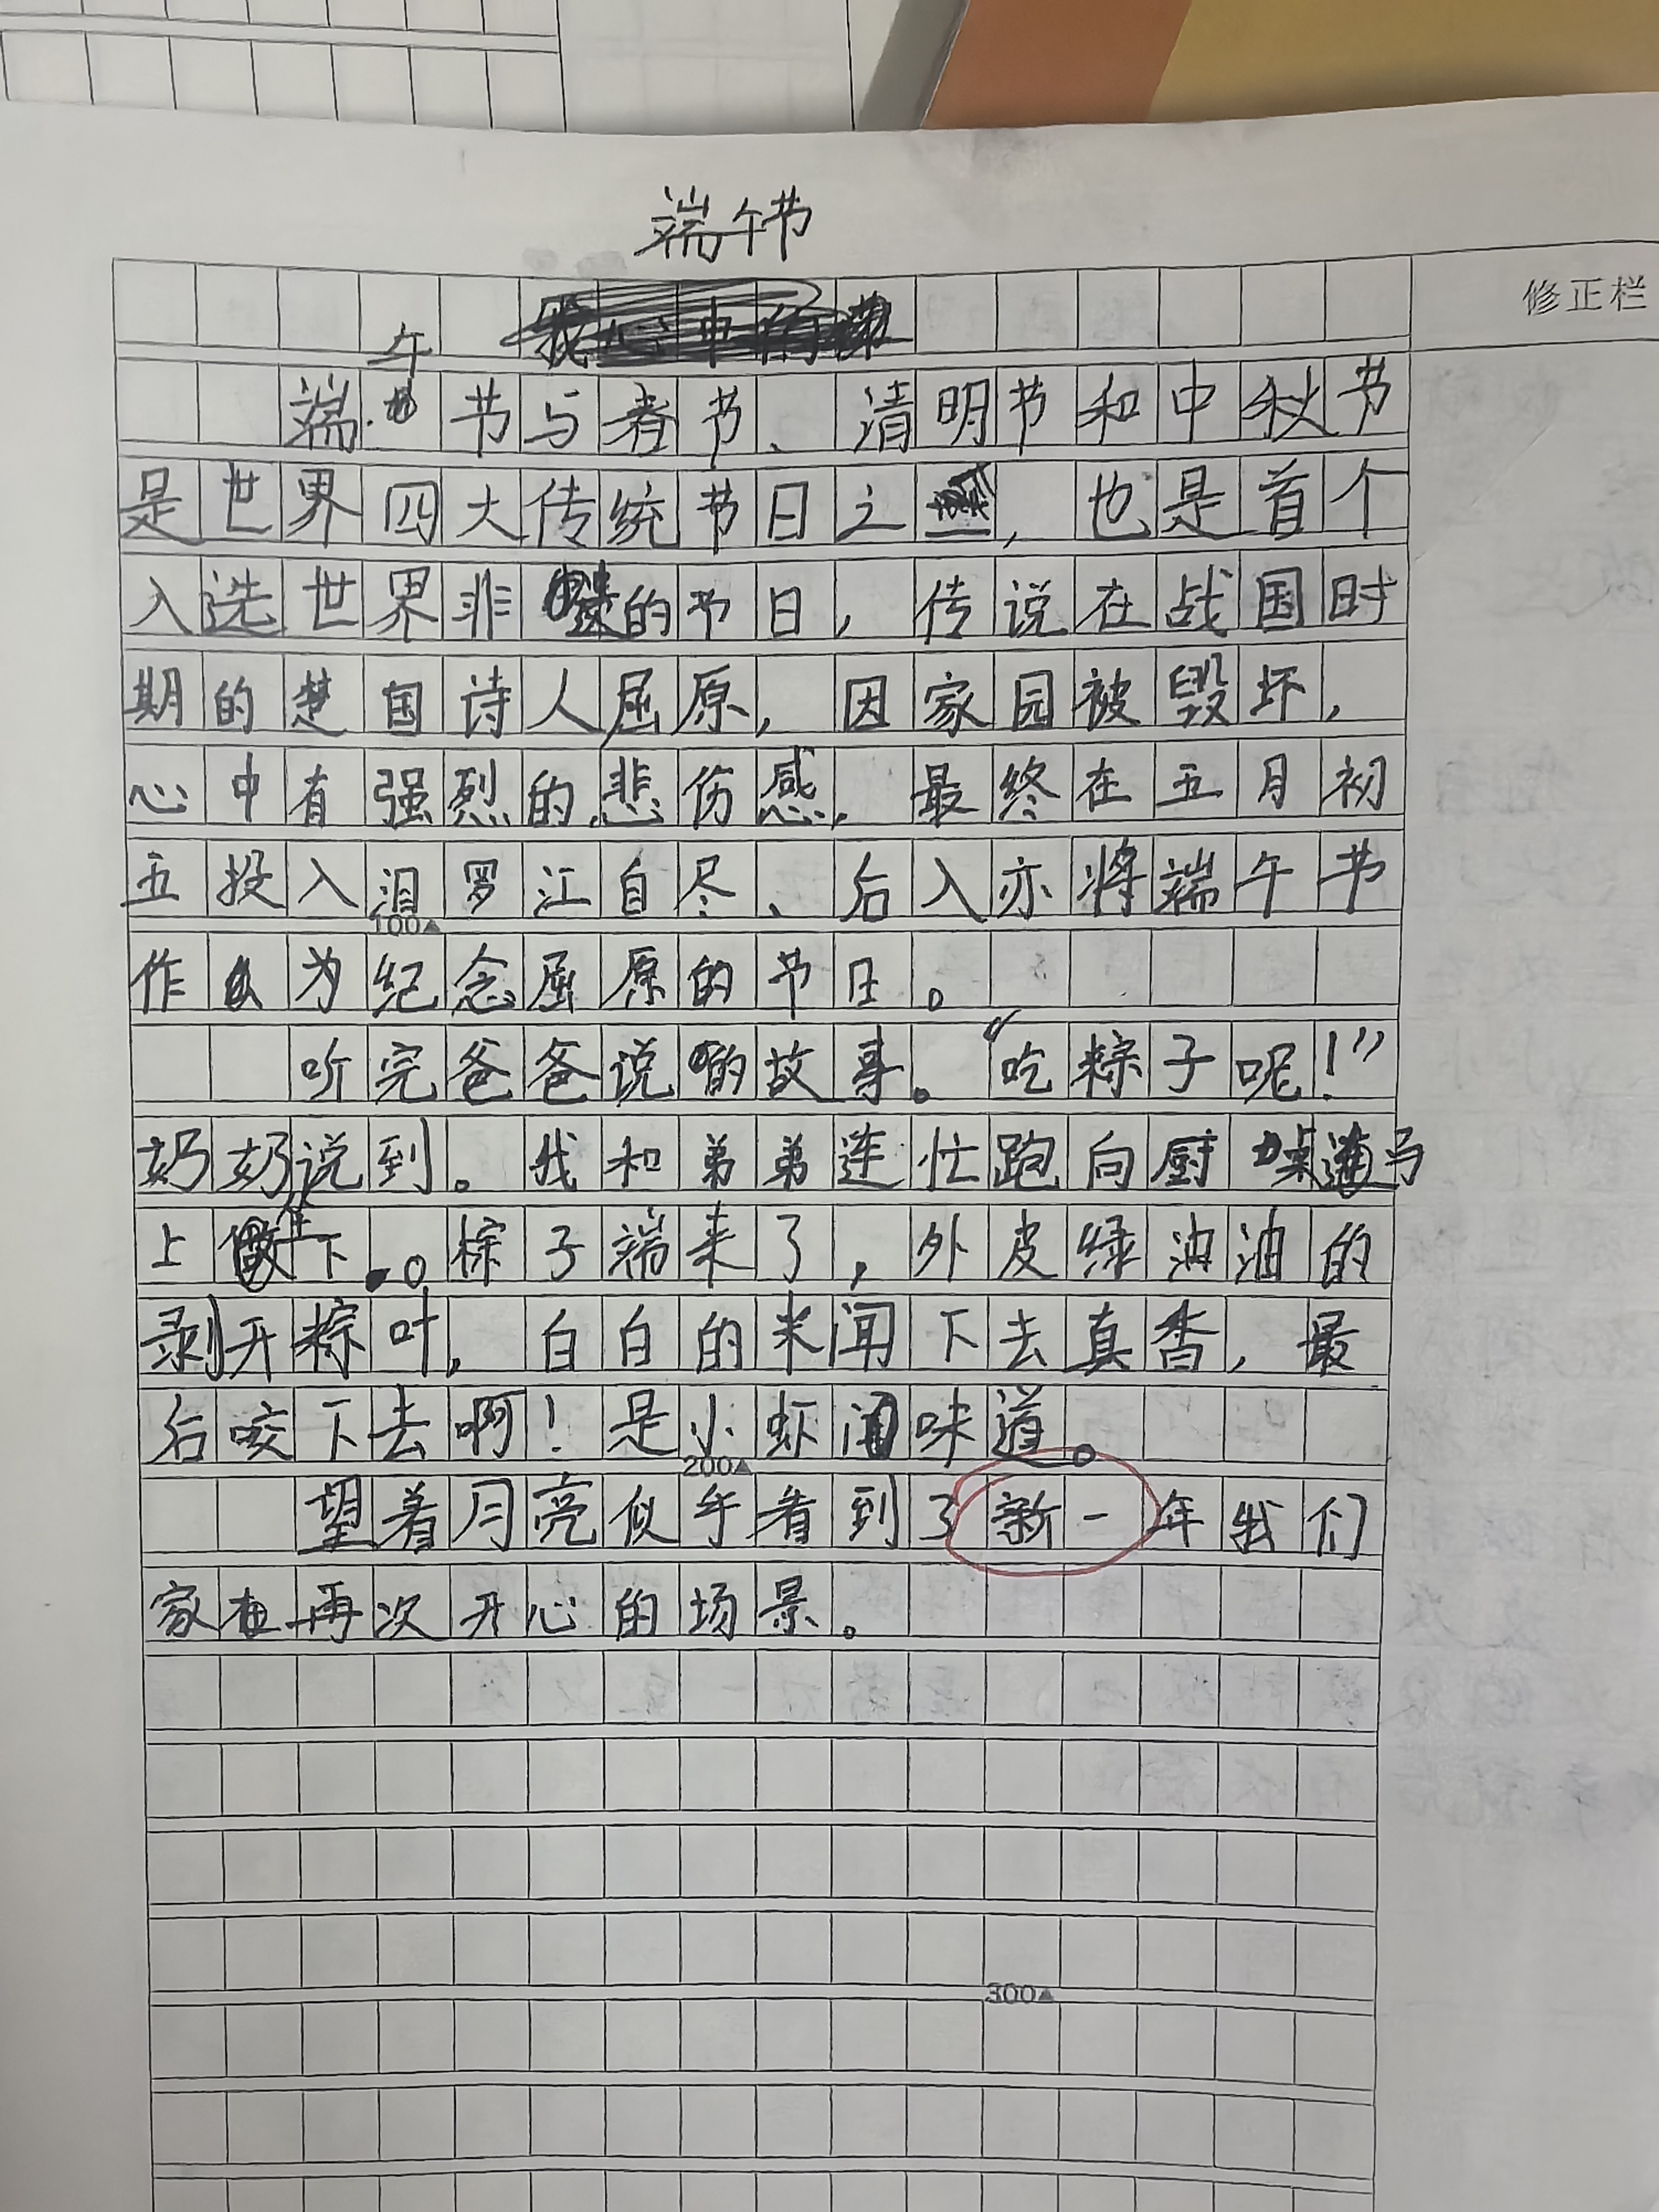 端午节
修正栏
午
端 节与春节、清明节和中秋节
是世界四大传统节日之一,也是首个
入选世界非遗的节日,传说在战国时
期的楚国诗人屈原,因家园被毁坏,
心中有强烈的悲伤感,最终在五月初
五投入汨罗江自尽、后入亦将端午节
100▲
作为纪念屈原的节日。
听完爸爸说的故事。“吃粽子呢!”
奶奶说到。我和弟弟连忙跑向厨 桌边马
上坐下。粽子端来了,外皮绿油油的
剥开粽叶,白白的米闻下去真香,最
后咬下去啊!是小虾 味道。
200▲
望着月亮似乎看到了新一年我们
家在再次开心的场景。
300▲